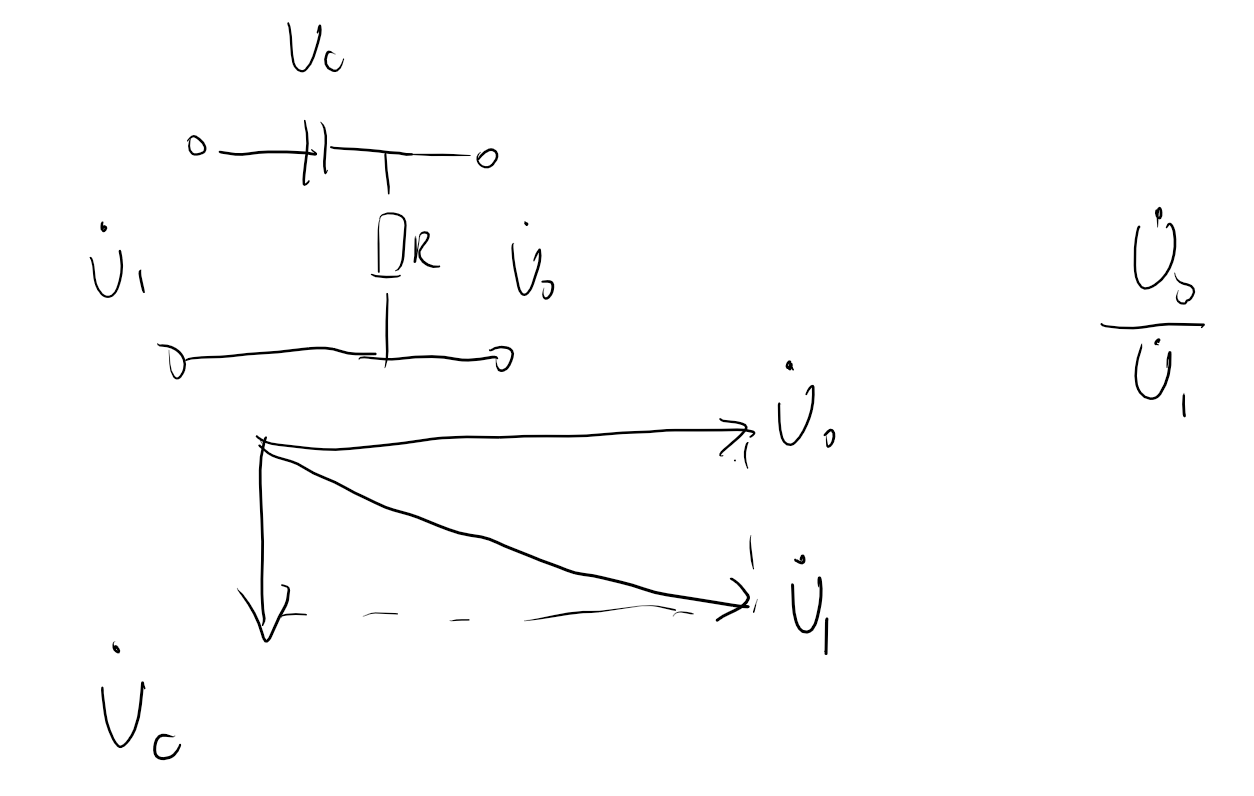 U_C
U̇_1
R
U̇_0
U̇_0
U̇_1
U̇_0
U̇_1
U̇_C